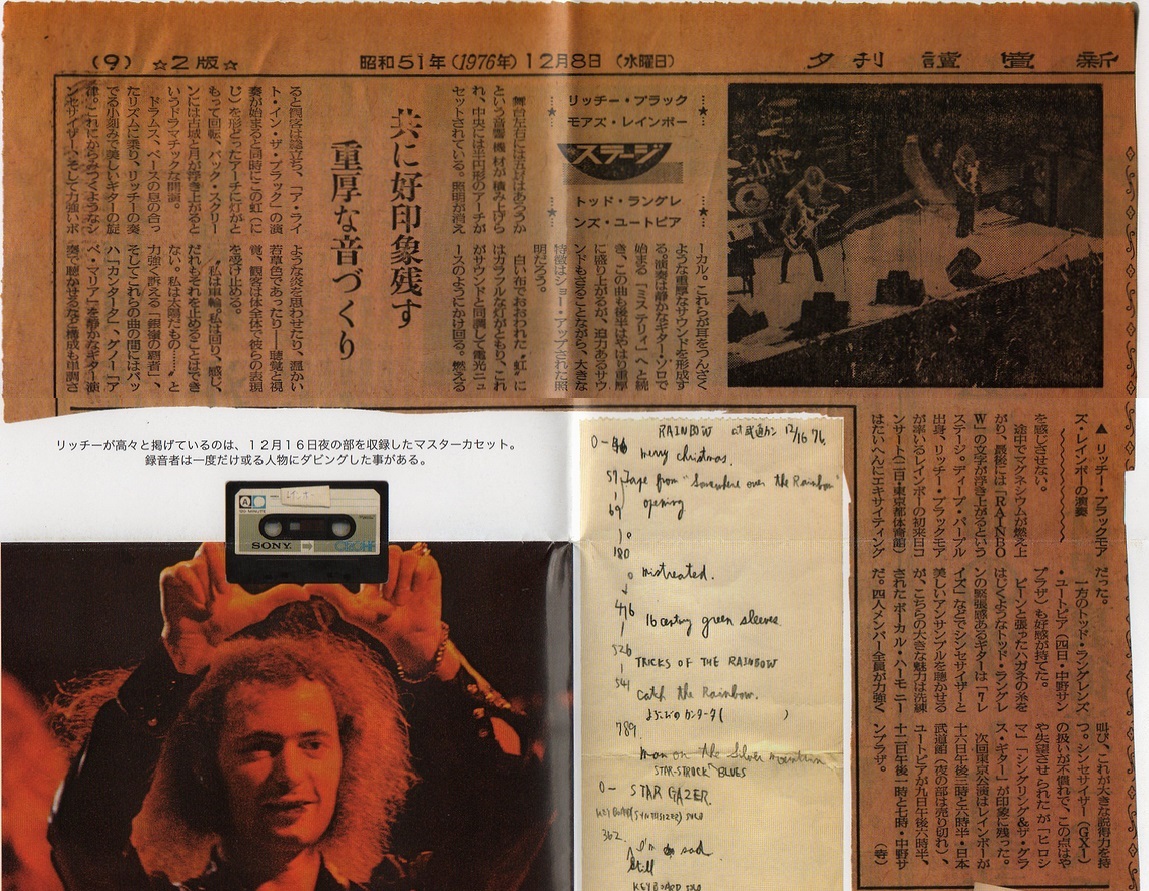 (9) ☆2版☆ 昭和51年(1976年)12月8日 (水曜日) 夕刊 讀賣新
★リッチー・ブラック
モアズ・レインボー★
ステージ
★トッド・ラングレ
ンズ・ユートピア★
共に好印象残す
重厚な音づくり
舞台左右には五㍍はあろうか
という音響機材が積み上げら
れ、中央には半円形のアーチが
セットされている。照明が消え
ると観客は総立ち、「ア・ライ
ト・イン・ザ・ブラック」の演
奏が始まると同時にこの虹(に
じ)を形どったアーチに灯がと
もって回転、バック・スクリー
ンには古城と月が浮き上がると
いうドラマチックな開幕。
ドラムス、ベースの息の合っ
たリズムに乗り、リッチーの奏
でる小刻みで美しいギターの旋
律。これにからみつくようなシ
ンセサイザー、そして力強いボ
ーカル。これらが耳をつんざく
ような重厚なサウンドを形成す
る。演奏は静かなギター・ソロで
始まる「ミス・テリィ」へと続
き、この曲も後半はやはり重厚
に盛り上がるが、迫力あるサウ
ンドもさることながら、大きな
特徴はショー・アップされた照
明だろう。
白い布でおおわれた“虹”に
はカラフルな灯がともり、これ
がサウンドと同調して電光ニュ
ースのようにかけ回る。燃える
ような炎を思わせたり、温かい
若草色であったり――聴覚と視
覚、観客は体全体で彼らの表現
を受け止める。
“私は車輪。私は回り、感じ、
だれもそれを止めることはでき
ない。私は太陽だもの……”と
力強く訴える「銀嶺の覇者」、
そしてこれらの曲の間にはバッ
ハ「カンタータ」、グノー「ア
ベ・マリア」を静かなギター演
奏で聴かせるなど構成も単調さ
▲リッチー・ブラックモア
ズ・レインボーの演奏
を感じさせない。
途中でマグネシウムが燃え上
がり、最後には「RAINBO
W」の文字が浮き上がるという
ステージ。ディープ・パープル
出身、リッチー・ブラックモア
が率いるレインボーの初来日コ
ンサート(二日・東京都体育館)
はたいへんにエキサイティング
だった。
一方のトッド・ラングレンズ
・ユートピア(四日・中野サン
プラザ)も好感が持てた。
ピーンと張ったハガネの糸を
はじくようなトッド・ラングレ
ンの緊張感あるギターは「7レ
イズ」などでシンセサイザーと
美しいアンサンブルを聴かせる
が、こちらの大きな魅力は洗練
されたボーカル・ハーモニー
だ。四人メンバー全員が力強く
叫び、これが大きな説得力を持
つ。シンセサイザー(GX1)
の扱いが不慣れで、この点はや
や失望させられたが「ヒロシ
マ」「シングリング&ザ・グラ
ス・ギター」が印象に残った。
次回東京公演はレインボーが
十六日午後三時と六時半・日本
武道館(夜の部は売り切れ)、
ユートピアが九日午後六時半、
十二日午後一時と七時・中野サ
ンプラザ。
(寺)
リッチーが高々と掲げているのは、12月16日夜の部を収録したマスターカセット。
録音者は一度だけ或る人物にダビングした事がある。
A
レインボー
SONY
RAINBOW at 武道カン 12/16 76.
merry christmas.
Tape from "Somewhere over the Rainbow"
opening
180
mistreated.
416
16 century green sleeves
526
TRICKS OF THE RAINBOW
541
catch the Rainbow.
よろこびのカンタータ( )
789.
man on the Silver mountain
STAR-STRUCK BLUES
0- STAR GAZER.
KEYBOARD(SYNTHESIZER) SOLO
362.
Still I'm sad
KEYBOARD SOLO